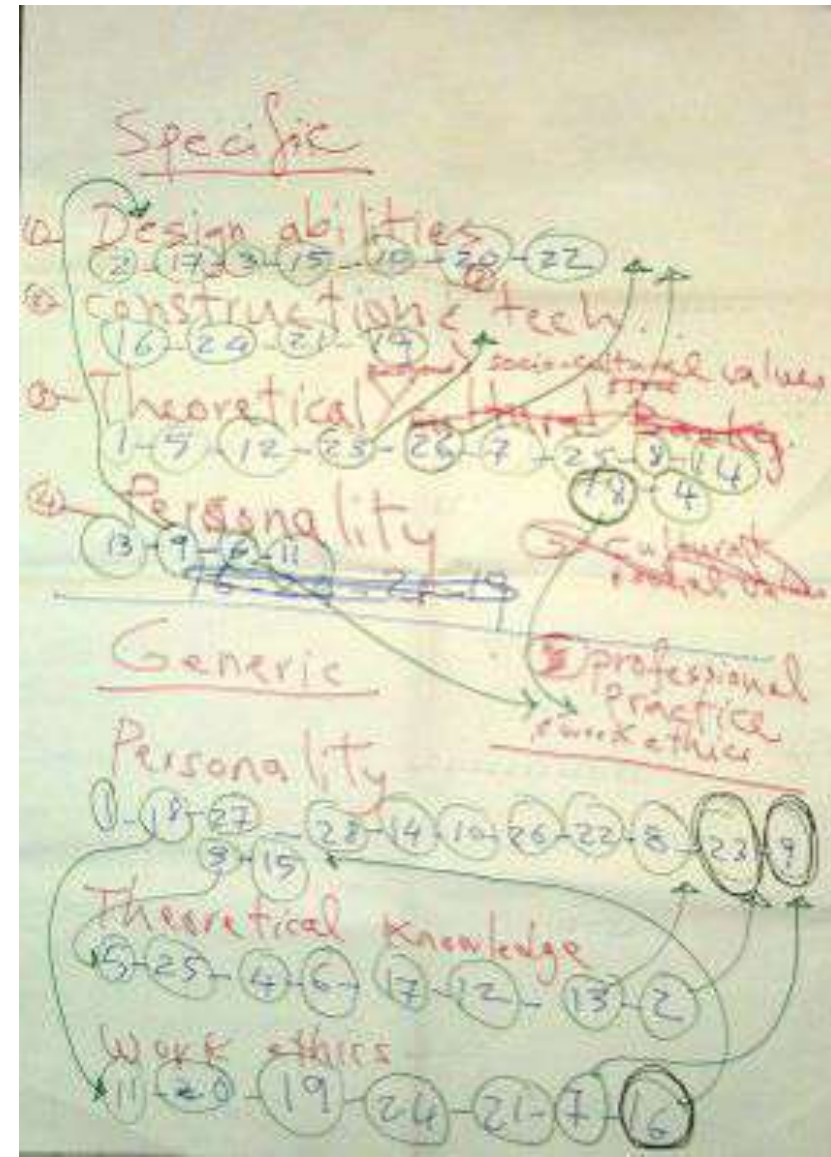 Specific
① Design abilities
2-17-3-15-10-20-22
② construction & tech.
16-24-21-19
socio-cultural values
③ Theoretical
1-5-12-23-26-7-25-8-14
18-4
④ Personality
13-9-6-11
21-19
cultural &
social values
Generic
5 professional
practice
& work ethics
Personality
1-18-27-28-14-10-26-22-8-23-9
3-15
Theoretical knowledge
5-25-4-6-17-12-13-2
Work ethics
11-20-19-24-21-7-16